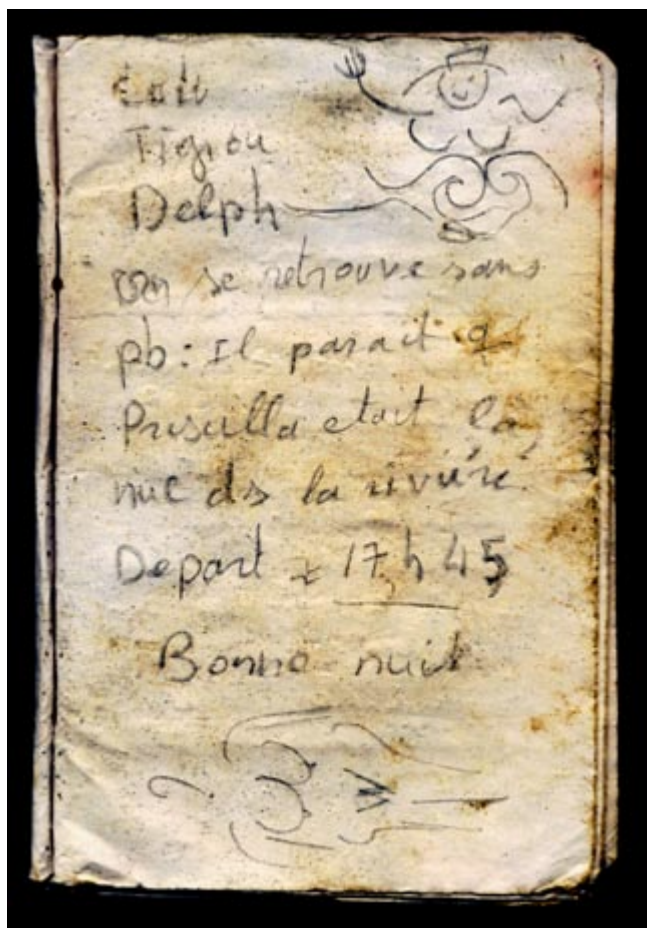 Tigrou
Delph
on se retrouve sans
pb: Il parait q
Priscilla etait la,
nue ds la rivière.
Depart 17h45
Bonne nuit